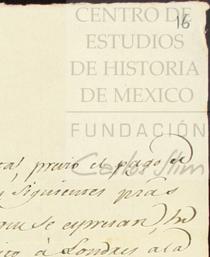 16
CENTRO DE
ESTUDIOS
DE HISTORIA
DE MEXICO
FUNDACIÓN
Carlos Slim
previo el pago de
siguientes
que se expresan,
à Londres a la